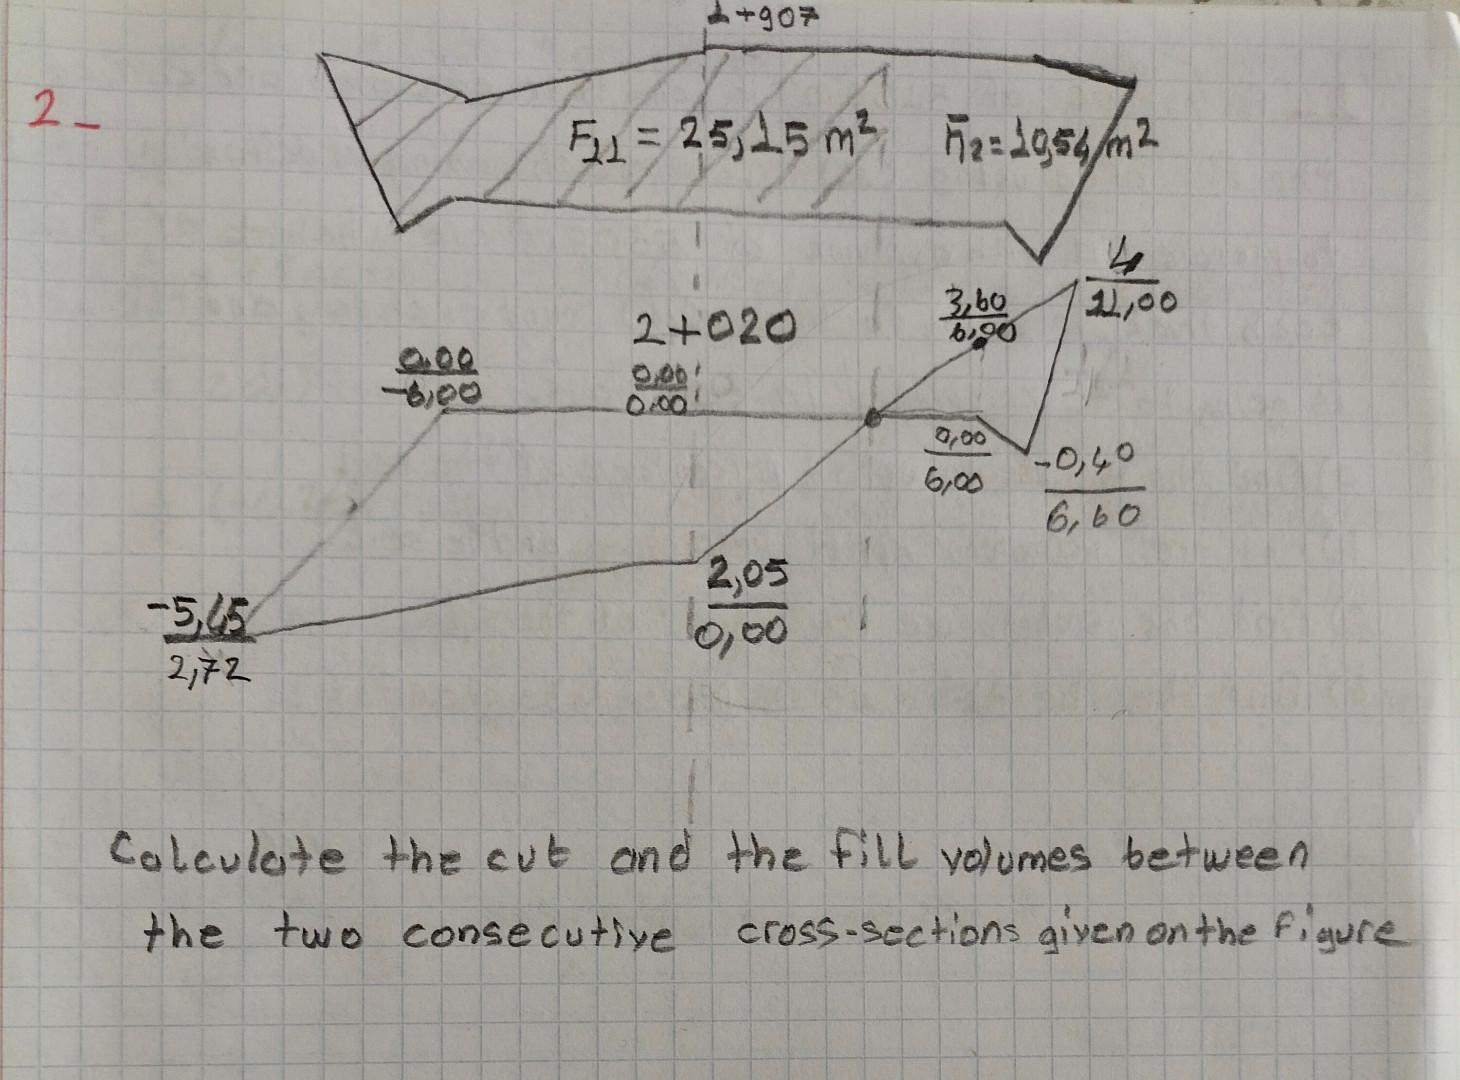 1+907
2-
F11 = 25,15 m² F12=10,54 m²
4
11,00
3,60
6,00
2+020
0.00
-6,00
0,00
0.00
0,00
6,00
-0,40
6,60
2,05
0,00
-5,45
2,72
Calculate the cut and the fill volumes between
the two consecutive cross-sections given on the figure